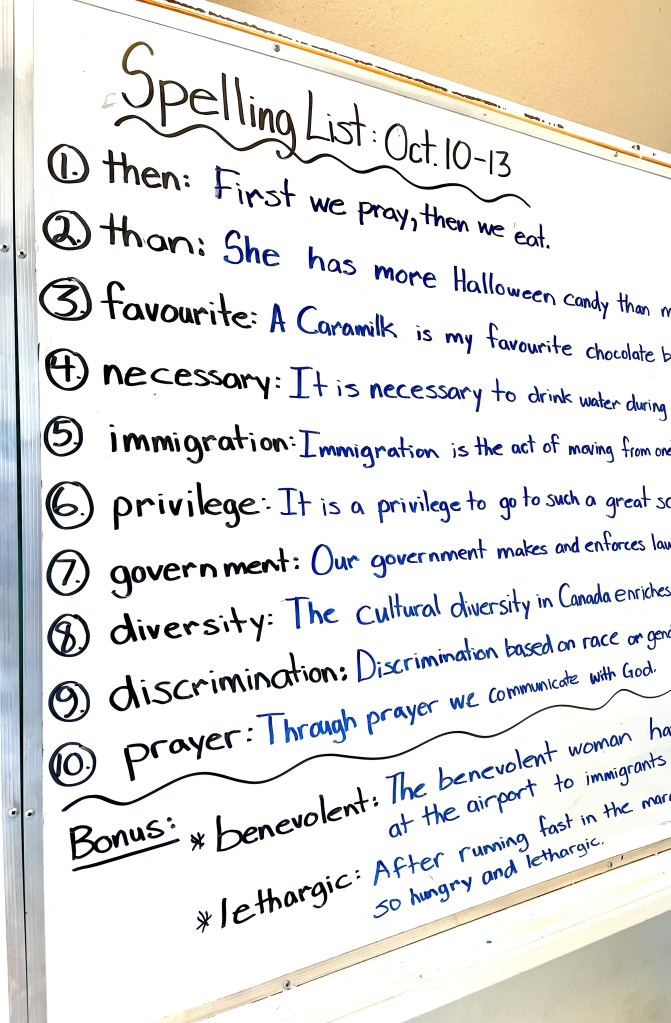 Spelling List: Oct. 10-13
1. then: First we pray, then we eat.
2. than: She has more Halloween candy than
3. favourite: A Caramilk is my favourite chocolate
4. necessary: It is necessary to drink water during
5. immigration: Immigration is the act of moving from one
6. privilege: It is a privilege to go to such a great
7. government: Our government makes and enforces
8. diversity: The cultural diversity in Canada enriches
9. discrimination: Discrimination based on race or
10. prayer: Through prayer we communicate with God.
Bonus: * benevolent: The benevolent woman
at the airport to immigrants
* lethargic: After running fast in the
so hungry and lethargic.